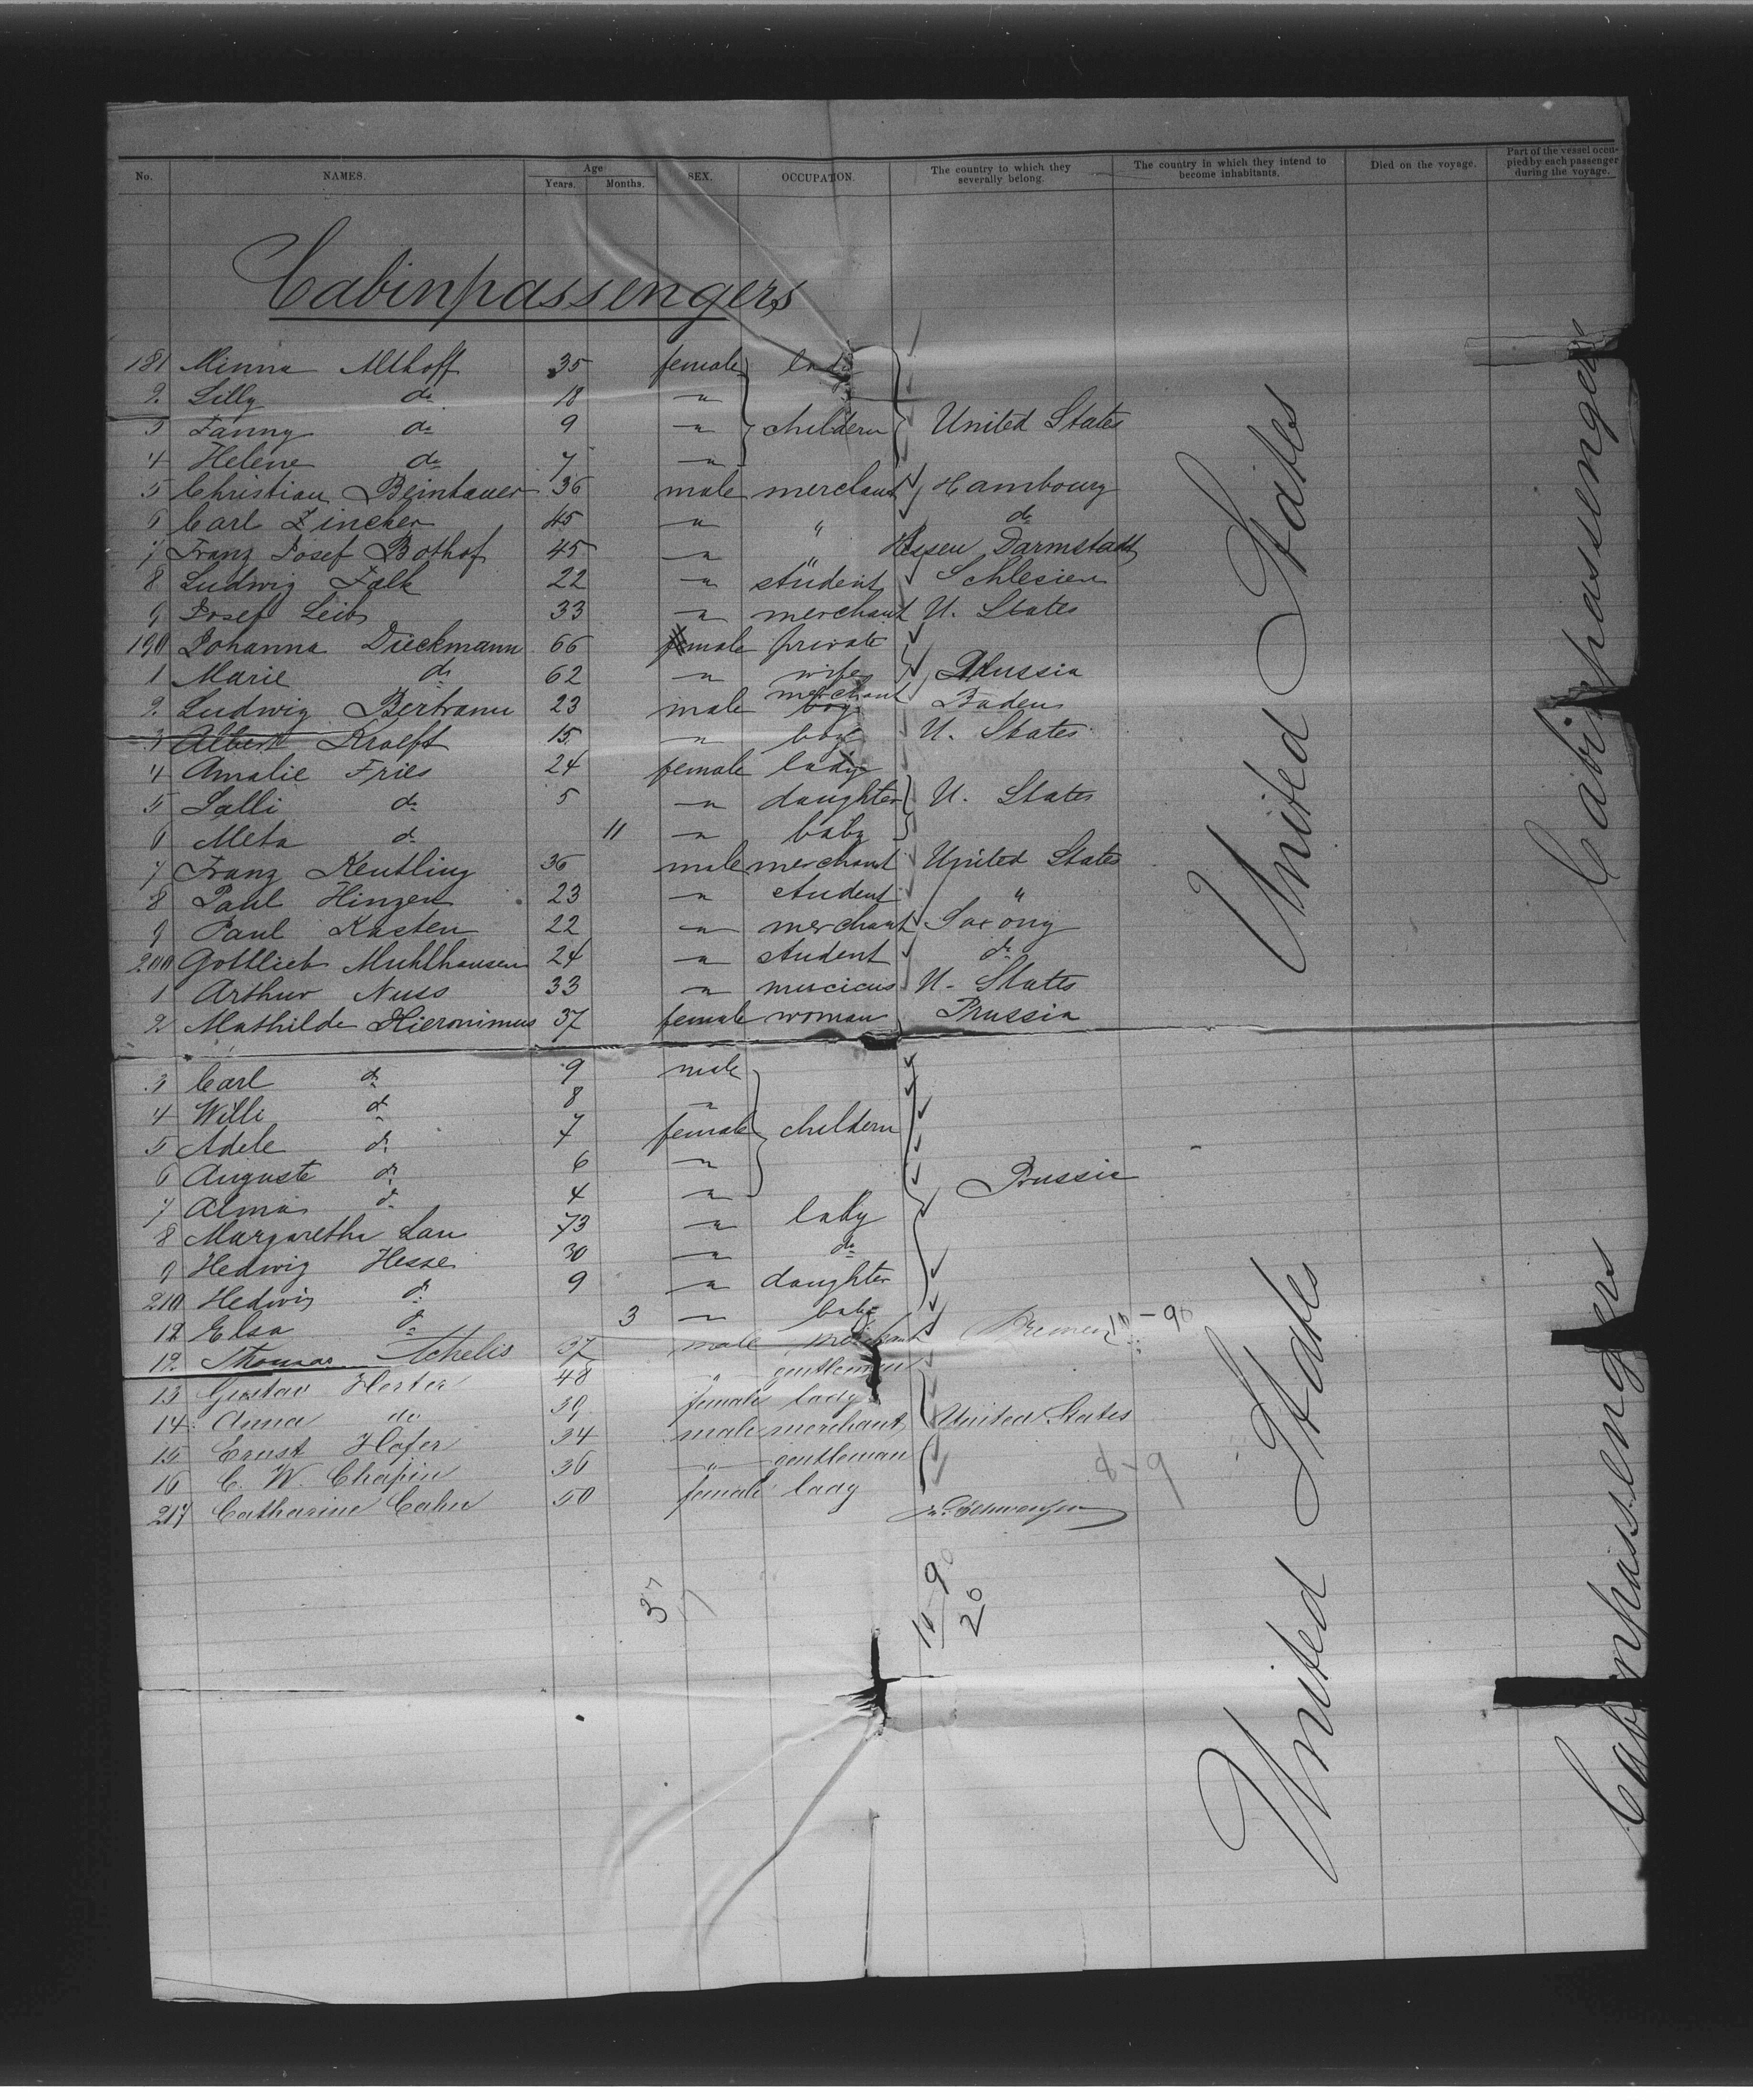 No. NAMES. Age Years. Months. SEX. OCCUPATION. The country to which they severally belong. The country in which they intend to become inhabitants. Died on the voyage. Part of the vessel occupied by each passenger during the voyage.
Cabinpassengers
181 Minna Althoff 35 female lady
2. Lilly do 18 "
3 Fanny do 9 " childern United States
4 Helene do 7 "
5 Christian Beintauer 36 male merchant Hambourg
6 Carl Zincker 45 " " do
7 Franz Josef Bothof 45 " " Hessen Darmstadt
8 Ludwig Falk 22 " student Schlesien
9 Josef Leib 33 " merchant U. States
190 Johanna Dieckmann 66 male private
1 Marie do 62 " wife Prussia
2. Ludwig Bertram 23 male merchant Baden
3 Albert Kraeft 15 " boy U. States
4 Amalie Fries 24 female lady
5 Salli do 5 " daughter U. States
6 Meta do 11 " baby
7 Franz Reutling 36 male merchant United States
8 Paul Hinzen 23 " student "
9 Paul Kasten 22 " merchant Saxony
200 Gottlieb Muhlhausen 24 " student do
1 Arthur Nuss 33 " musicus U. States
2 Mathilde Hieronimus 37 female woman Prussia
3 Carl do 9 male
4 Willi do 8 "
5 Adele do 7 female childern
6 Auguste do 6 "
7 Alma do 4 " Prussia
8 Margaretha Lau 73 " lady
9 Hedwig Hesse 30 " do
210 Hedwig do 9 " daughter
12 Elsa do 3 " baby
12. Thomas Achelis 37 male merchant Bremen
13 Gustav Herter 48 " gentleman
14 Anna do 39 female lady
15 Ernst Hofer 34 male merchant United States
16 C. W. Chapin 36 " gentleman
217 Catharine Cahn 50 female lady
37
90
20
United States
United States
Cabinpassengers
Cabinpassengers